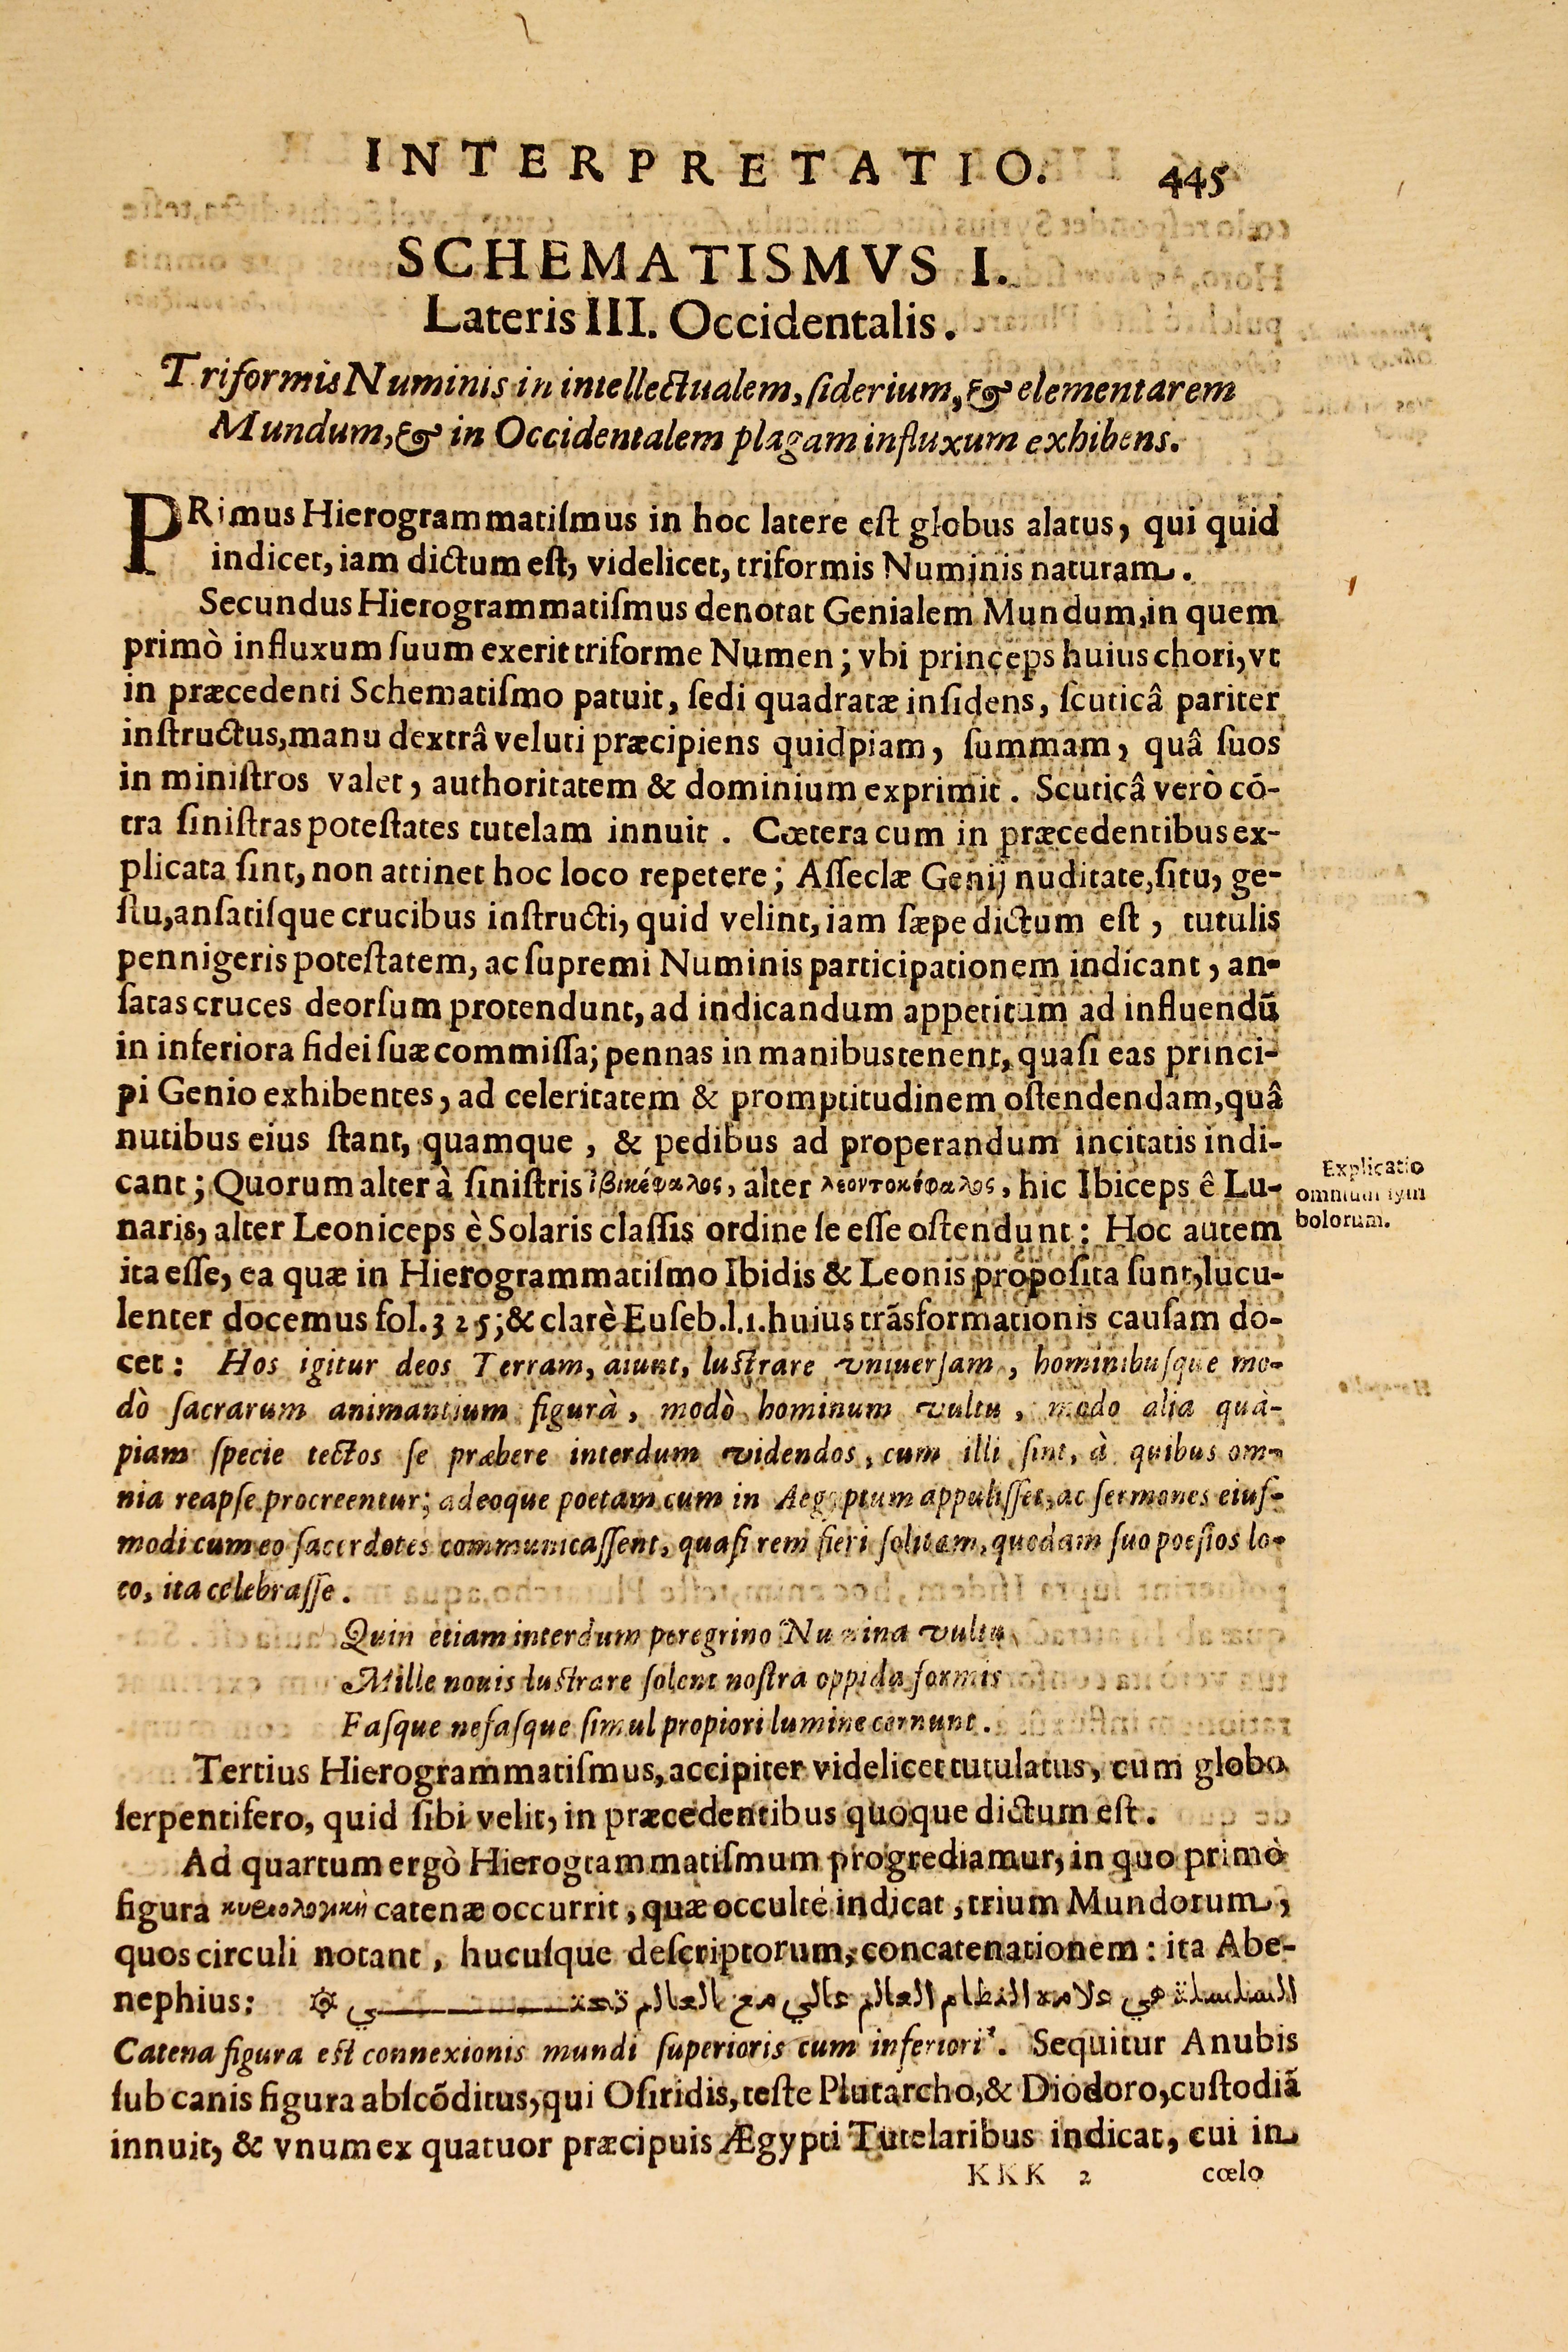 INTERPRETATIO. 445
SCHEMATISMVS I.
Lateris III. Occidentalis.
Triformis Numinis in intellectualem, ſiderium, & elementarem
Mundum, & in Occidentalem plagam influxum exhibens.
PRimus Hierogrammatiſmus in hoc latere eſt globus alatus, qui quid
indicet, iam dictum eſt, videlicet, triformis Numinis naturam.
Secundus Hierogrammatiſmus denotat Genialem Mundum, in quem
primò influxum ſuum exerit triforme Numen; vbi princeps huius chori, vt
in præcedenti Schematiſmo patuit, ſedi quadratæ inſidens, ſcuticâ pariter
inſtructus, manu dextrâ veluti præcipiens quidpiam, ſummam, quâ ſuos
in miniſtros valet, authoritatem & dominium exprimit. Scuticâ verò cō-
tra ſiniſtras poteſtates tutelam innuit. Cœtera cum in præcedentibus ex-
plicata ſint, non attinet hoc loco repetere; Aſſeclæ Genij nuditate, ſitu, ge-
ſtu, anſatiſque crucibus inſtructi, quid velint, iam ſæpe dictum eſt, tutulis
pennigeris poteſtatem, ac ſupremi Numinis participationem indicant, an-
ſatas cruces deorſum protendunt, ad indicandum appetitum ad influendū
in inferiora fidei ſuæ commiſſa; pennas in manibus tenent, quaſi eas princi-
pi Genio exhibentes, ad celeritatem & promptitudinem oſtendendam, quâ
nutibus eius ſtant, quamque, & pedibus ad properandum incitatis indi-
cant; Quorum alter à ſiniſtris ἰβικέφαλος, alter λεοντοκέφαλος, hic Ibiceps ê Lu-
naris, alter Leoniceps è Solaris claſſis ordine ſe eſſe oſtendunt: Hoc autem
ita eſſe, ea quæ in Hierogrammatiſmo Ibidis & Leonis propoſita ſunt, lucu-
lenter docemus fol. 325; & clarè Euſeb. l. 1. huius trāsformationis cauſam do-
cet: Hos igitur deos Terram, aiunt, luſtrare vniuerſam, hominibuſque mo-
dò ſacrarum animantium figurà, modò hominum vultu, modo alia quâ-
piam ſpecie tectos ſe præbere interdum videndos, cum illi ſint, à quibus om-
nia reapſe procreentur; adeoque poetam cum in Aegyptum appuliſſet, ac ſermones eiuſ-
modi cum eo ſacerdotes communicaſſent, quaſi rem fieri ſolitam, quodam ſuo poeſios lo-
co, ita celebraſſe.
Quin etiam interdum peregrino Numina vultu
Mille nouis luſtrare ſolent noſtra oppida formis
Faſque nefaſque ſimul propiori lumine cernunt.
Tertius Hierogrammatiſmus, accipiter videlicet tutulatus, cum globo
ſerpentifero, quid ſibi velit, in præcedentibus quoque dictum eſt.
Ad quartum ergò Hierogrammatiſmum progrediamur, in quo primò
figura κυριολογικὴ catenæ occurrit, quæ occultè indicat, trium Mundorum,
quos circuli notant, hucuſque deſcriptorum, concatenationem: ita Abe-
nephius: السلسلة هي علامه النظام العالم عالي مع العالم تحتـــــي
Catena figura eſt connexionis mundi ſuperioris cum inferiori. Sequitur Anubis
ſub canis figura abſcōditus, qui Oſiridis, teſte Plutarcho, & Diodoro, cuſtodiā
innuit, & vnum ex quatuor præcipuis Ægypti Tutelaribus indicat, cui in
KKK 2 cœlo
Explicatio
omnium ſym
bolorum.